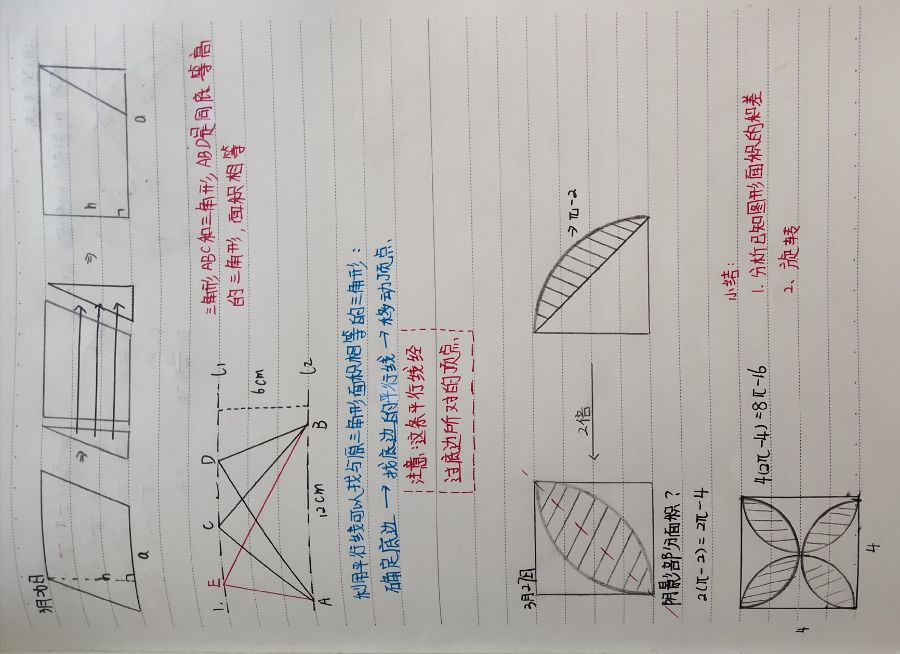 h
a
⇒
⇒
h
a
1.
E
C
D
l1
6cm
l2
A
12cm
B
三角形ABC和三角形ABD是同底等高
的三角形,面积相等
利用平行线可以找与原三角形面积相等的三角形:
确定底边 → 找底边的平行线 → 移动顶点.
注意:这条平行线经
过底边所对的顶点.
3月27日
2倍
→ π-2
阴影部分面积?
2(π-2)=2π-4
4
4
4(2π-4)=8π-16
小结:
1. 分析已知图形面积的和差
2、旋转